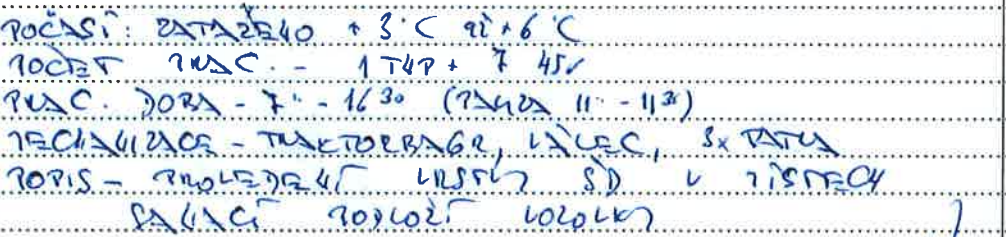 POČASÍ: ZATAŽENO +3°C až +6°C
POČET PRAC. - 1 THP + 7
PRAC. DOBA - 7°° - 16³⁰ (PAUZA 11°° - 11³⁰)
MECHANIZACE - TRAKTORBAGR, VÁLEC, 3x TATRA
POPIS - PROVEDENÍ VRSTVY ŠD V MÍSTECH
SANACÍ PODLOŽÍ VOZOVKY